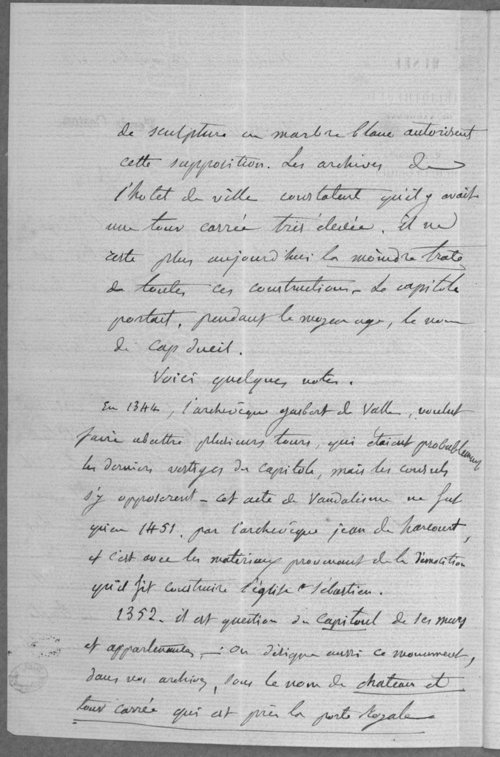 de sculpture en marbre blanc autorisent
cette supposition. Les archives de
l'hotel de ville constatent qu'il y avait
une tour carrée très élevée. il ne
reste plus aujourd'hui la moindre trace
de toutes ces constructions. Le capitole
portait, pendant le moyen age, le nom
de cap dueil.
Voici quelques notes.
En 1344, l'archevêque gasbert de Valle, voulut
faire abattre plusieurs tours, qui étaient probablement
les derniers vestiges du capitole, mais les consuls
s'y opposèrent - cet acte de Vandalisme ne fut
qu'en 1451. par l'archevêque jean de harcourt,
et c'est avec les matériaux provenant de la démolition
qu'il fit construire l'église St Sébastien.
1352. il est question du Capitoul de ses murs
et appartenances, - on désigne aussi ce monument,
dans nos archives, sous le nom de chateau et
tour carrée qui est près la porte Royale